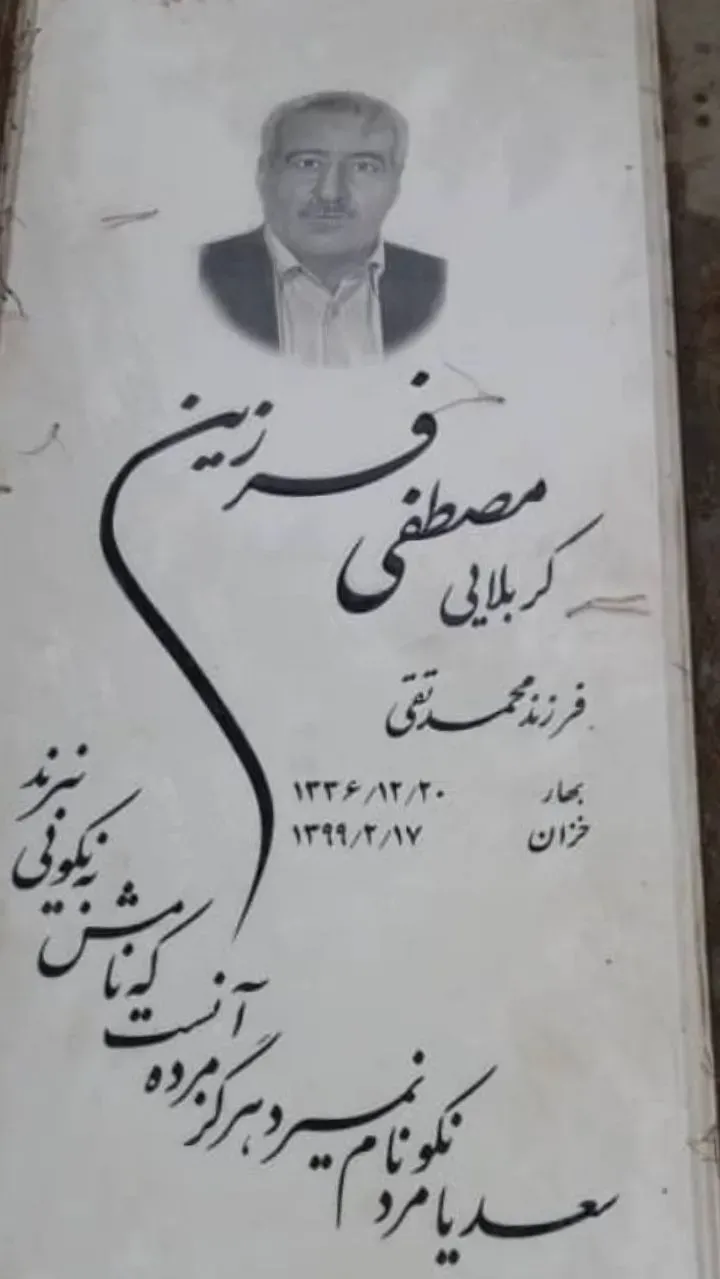 کربلایی
مصطفی
فرزین
فرزند محمدتقی
بهار ۱۳۳۶/۱۲/۲۰
خزان ۱۳۹۹/۲/۱۷
سعدیا مرد نکونام نمیرد هرگز
مرده آنست که نامش به نکوئی نبرند